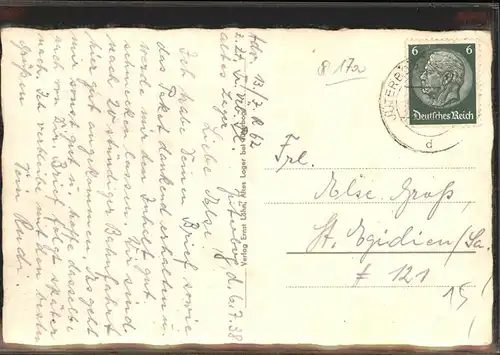 Adr. 13./J. R. 62
altes Lager
Jüterbog, d. 6.7.38
Liebe Ilse!
Ich habe Deinen Brief sowie
das Paket dankend erhalten u.
werde mir den Inhalt gut
schmecken lassen. Wir sind
nach 20 stündiger Bahnfahrt
hier gut angekommen. Es geht
mir sonst gut u. hoffe dasselbe
auch von Dir. Brief folgt später
nach. Ich verbleibe mit den besten
Grüßen
Dein Rudi.
Verlag Ernst Altes Lager bei
6 6
Deutsches Reich
JÜTERB
d
@ 17a
Frl.
Ilse Groß,
St. Egidien/Sa.
# 121
15